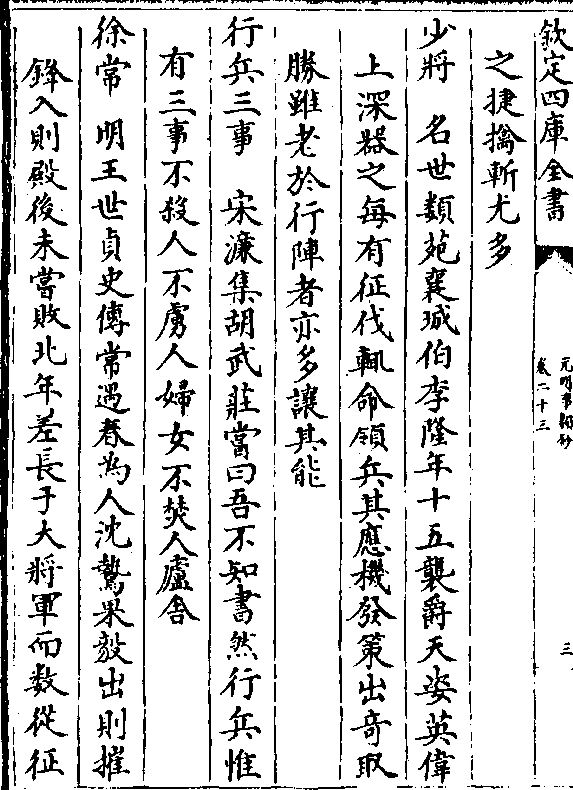 欽定四庫全書
元明事類鈔
卷二十三
三
之捷擒斬尤多
少將　名世類苑襄城伯李隆年十五襲爵天姿英偉
上深器之每有征伐輒命領兵其應機發策出奇取
勝雖老於行陣者亦多讓其能
行兵三事　宋濂集胡武莊當曰吾不知書然行兵惟
有三事不殺人不虜人婦女不焚人廬舍
徐常　明王世貞史傳常遇春為人沈鷙果毅出則摧
鋒入則殿後未嘗敗北年差長于大將軍而数從征